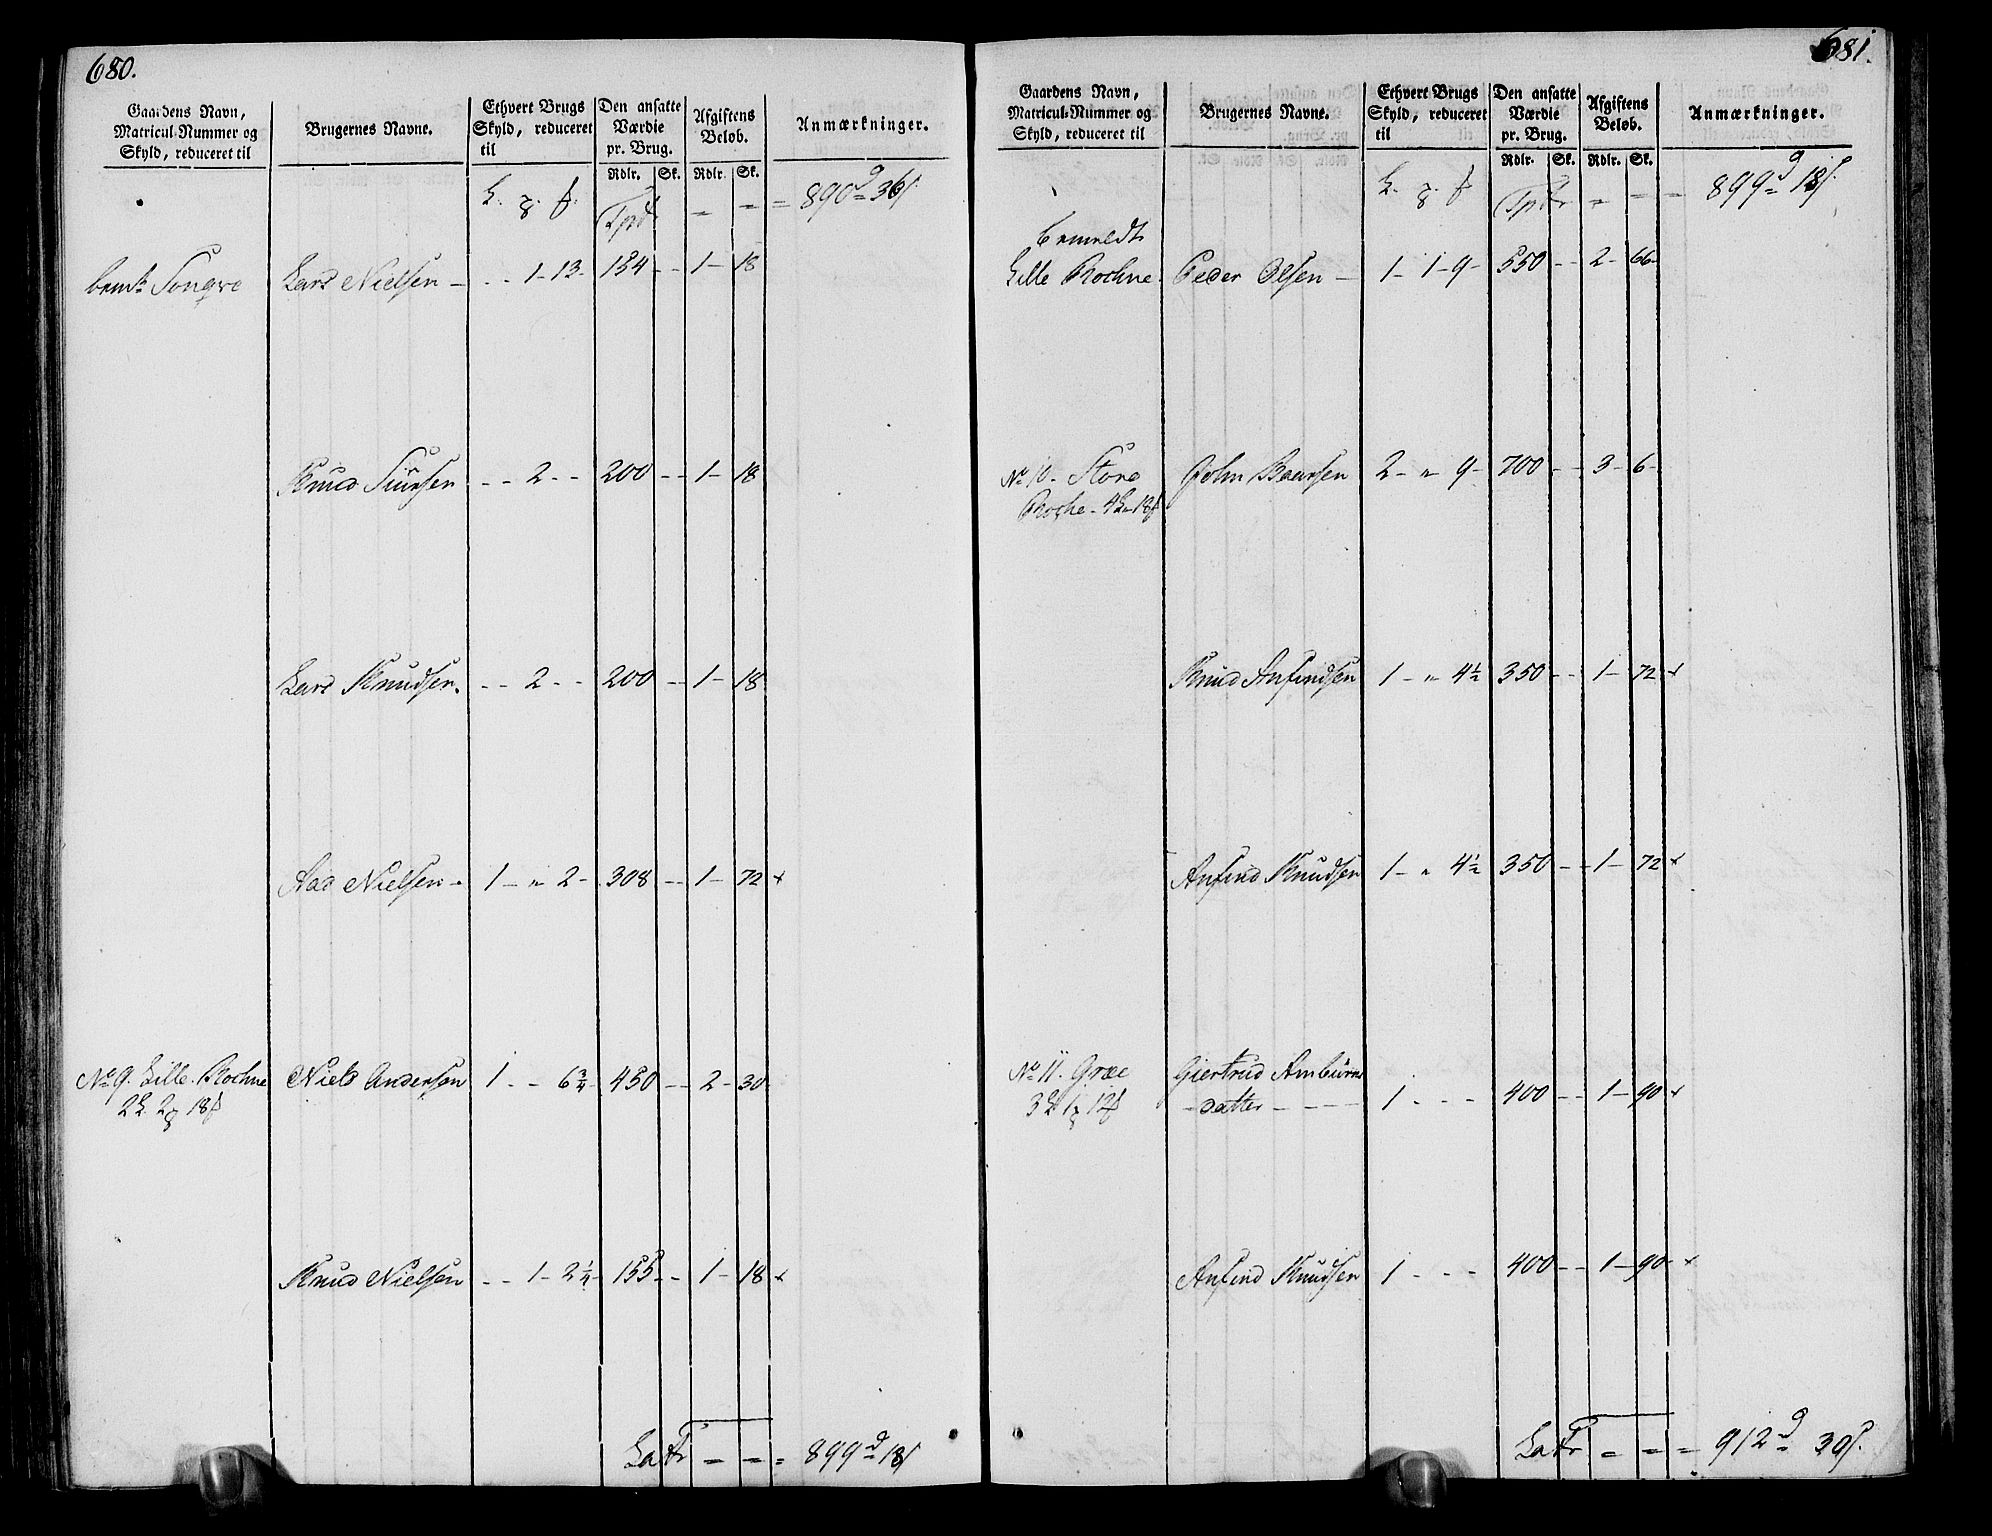 680.
Gaardens Navn, Matricul-Nummer og Skyld, reduceret til
Brugernes Navne.
Ethvert Brugs Skyld, reduceret til
Den ansatte Værdie pr. Brug.
Afgiftens Beløb.
Anmærkninger.
Rdlr. Sk. Rdlr. Sk.
Tprt - - = 890 d 36 s.
bem.te Songve Lars Nielsen - - - 1 - 13 - 154 - - 1 - 18
Knud Siursen - - 2 - - 200 - - 1 - 18
Lars Knudsen. - - 2 - - 200 - - 1 - 18
Aad Nielsen - 1 - " 2 - 308 - - 1 - 72 x
No 9. Lille Rochne Niels Andersen 1 - - 6 3/4 - 450 - - 2 - 30
2 L 2 g 18 f
Knud Nielsen - - 1 - 2 1/4 - 155 - - 1 - 18 x
LaTr - - = 899 d 18 s
681.
Gaardens Navn, Matricul-Nummer og Skyld, reduceret til
Brugernes Navne.
Ethvert Brugs Skyld, reduceret til
Den ansatte Værdie pr. Brug.
Afgiftens Beløb.
Anmærkninger.
Rdlr. Sk. Rdlr. Sk.
Tprt = - - 899 d 18 s.
bemeldte
Lille Rochne - Peder Olsen - 1 - 1 - 9 - 550 - - 2 - 66 -
No 10. Store John Baarsen 2 - " 9 - 700 - - 3 - 6 -
Roche - 4 L - 18 f
Knud Anfindsen 1 - " 4 1/2 350 - - 1 - 72 x
Anfind Knudsen 1 - " 4 1/2 350 - - 1 - 72 x
No 11. Græe Giertrud Ambiørns
3 L 1 g 12 f - datter - - - - 1 - - - 400 - - 1 - 90 x
Anfind Knudsen 1 - - - 400 - - 1 - 90 - x
LaTr = - - 912 d 30 s.